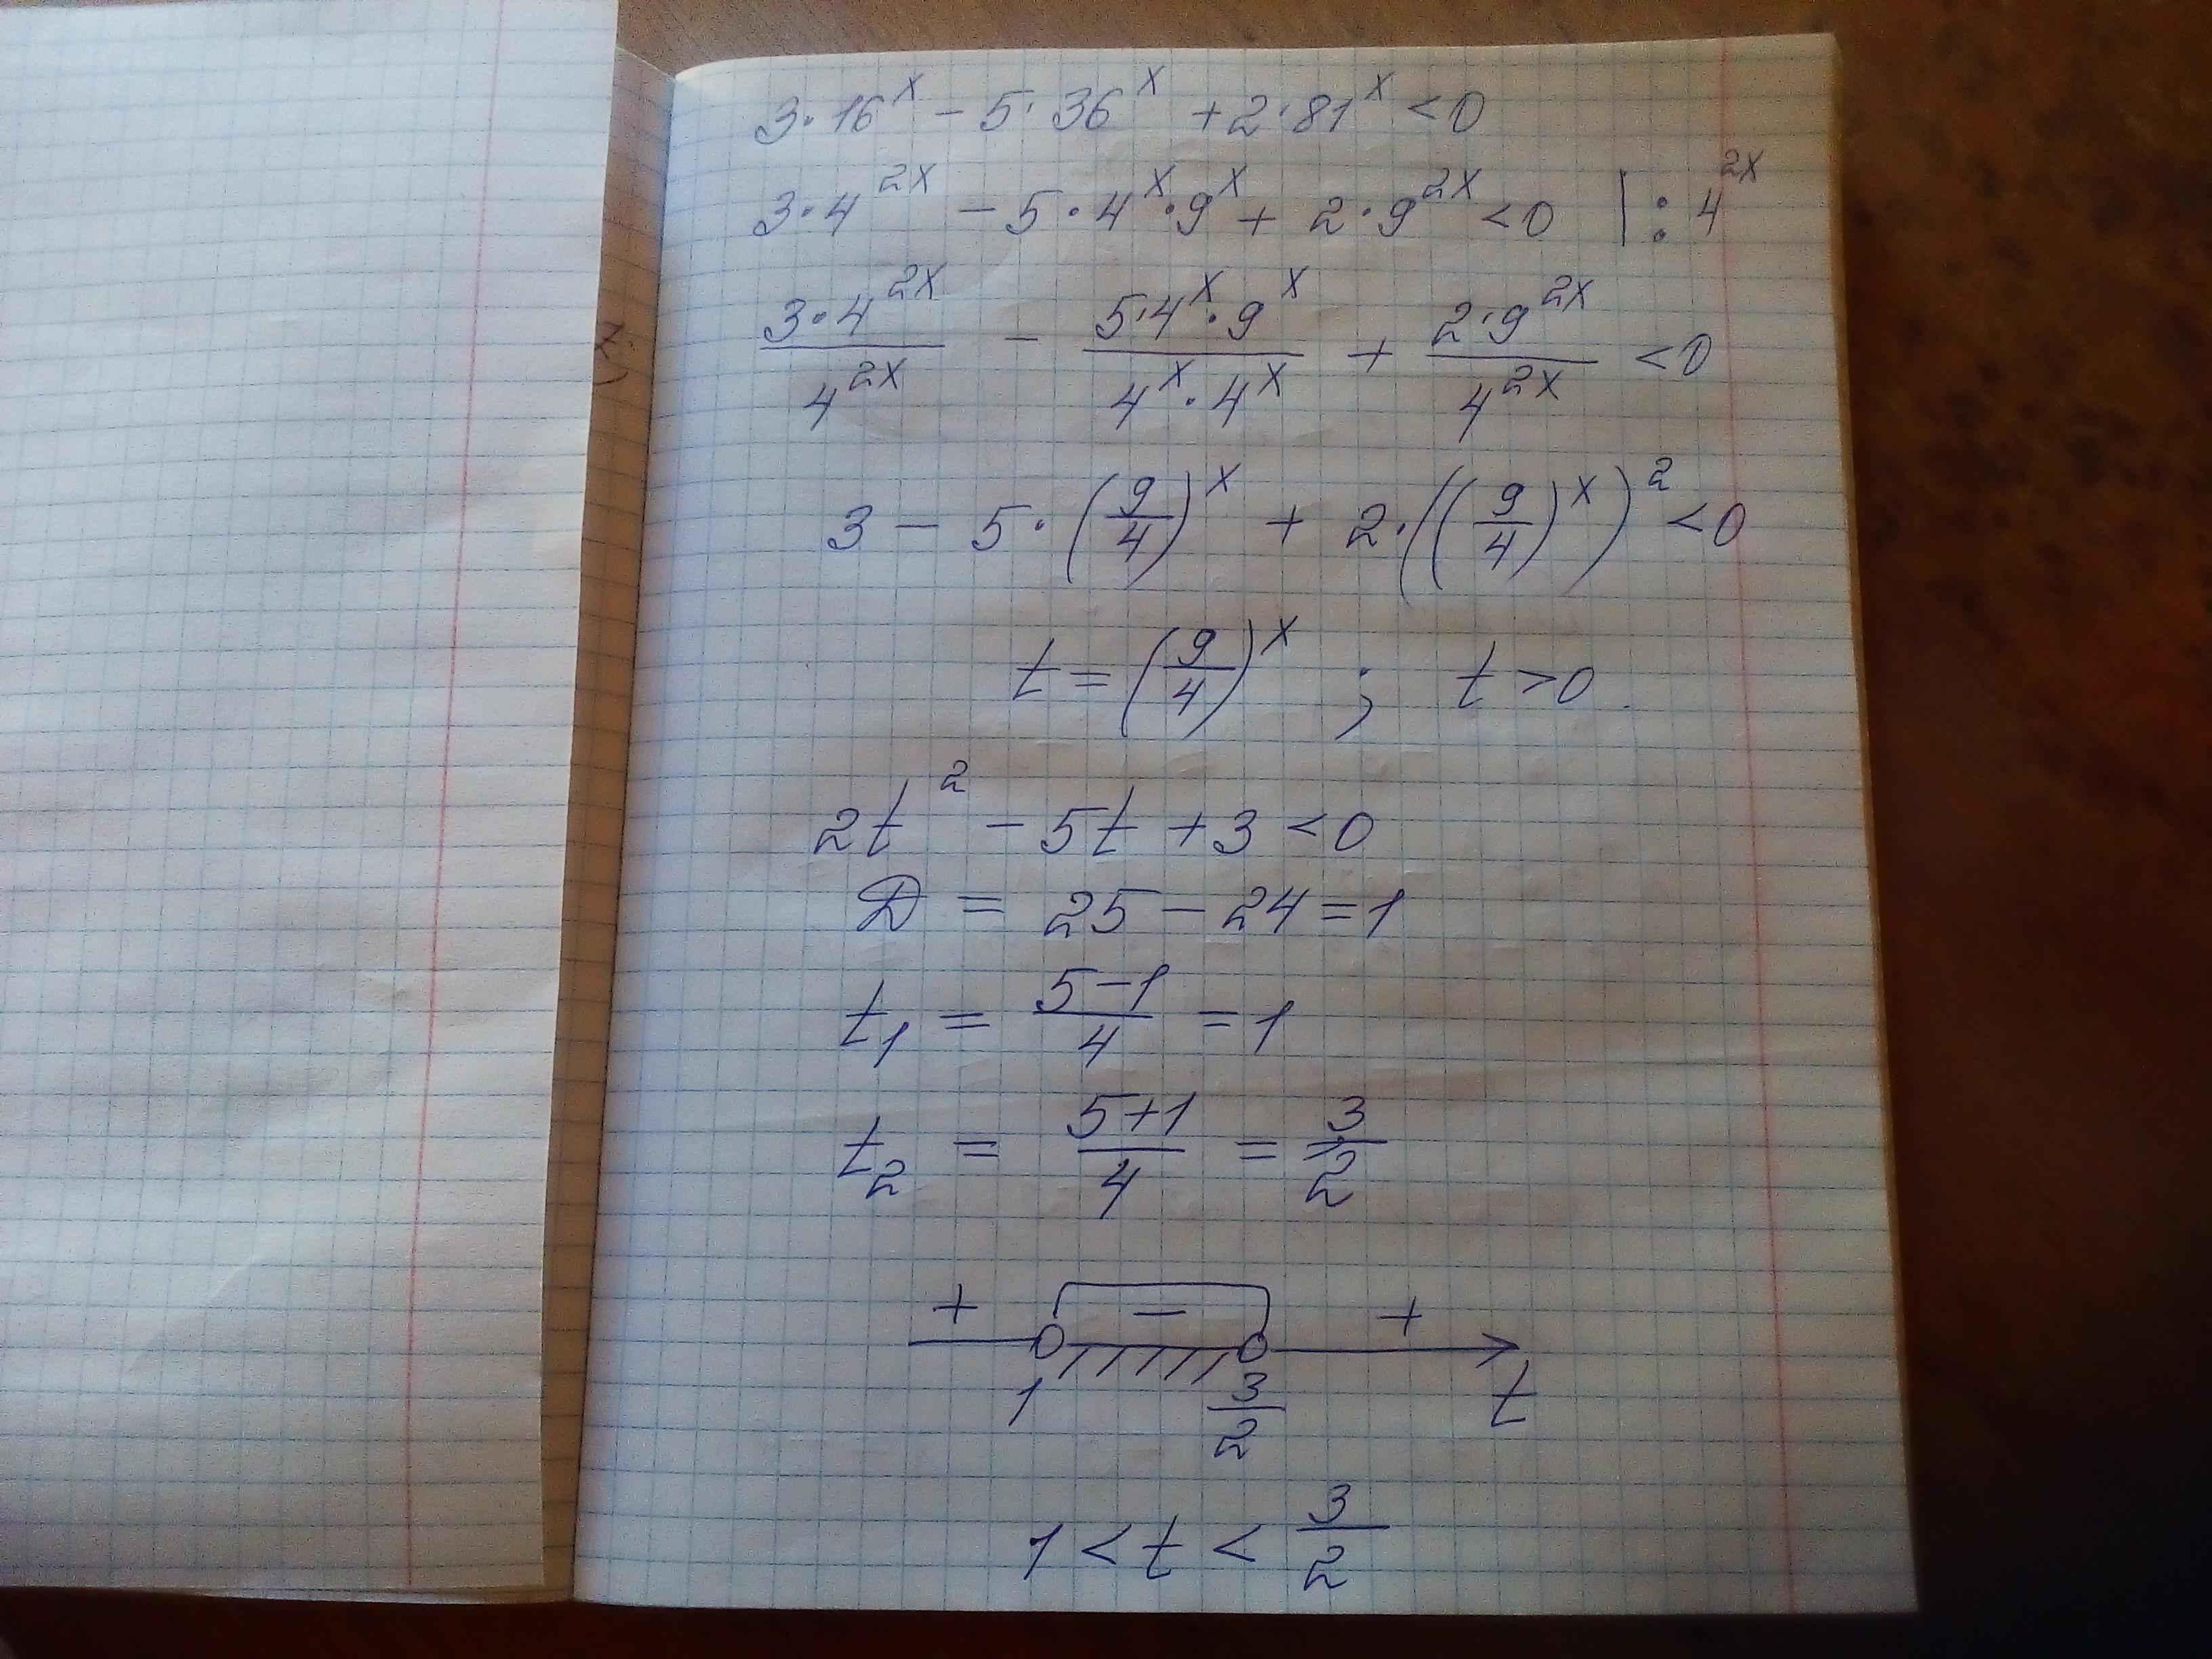 3·16^x − 5·36^x + 2·81^x < 0
3·4^{2x} − 5·4^x·9^x + 2·9^{2x} < 0 | : 4^{2x}
\frac{3·4^{2x}}{4^{2x}} − \frac{5·4^x·9^x}{4^x·4^x} + \frac{2·9^{2x}}{4^{2x}} < 0
3 − 5·(\frac{9}{4})^x + 2·((\frac{9}{4})^x)^2 < 0
t = (\frac{9}{4})^x ; t > 0.
2t^2 − 5t + 3 < 0
D = 25 − 24 = 1
t_1 = \frac{5−1}{4} = 1
t_2 = \frac{5+1}{4} = \frac{3}{2}
+ − +
1 \frac{3}{2} t
1 < t < \frac{3}{2}